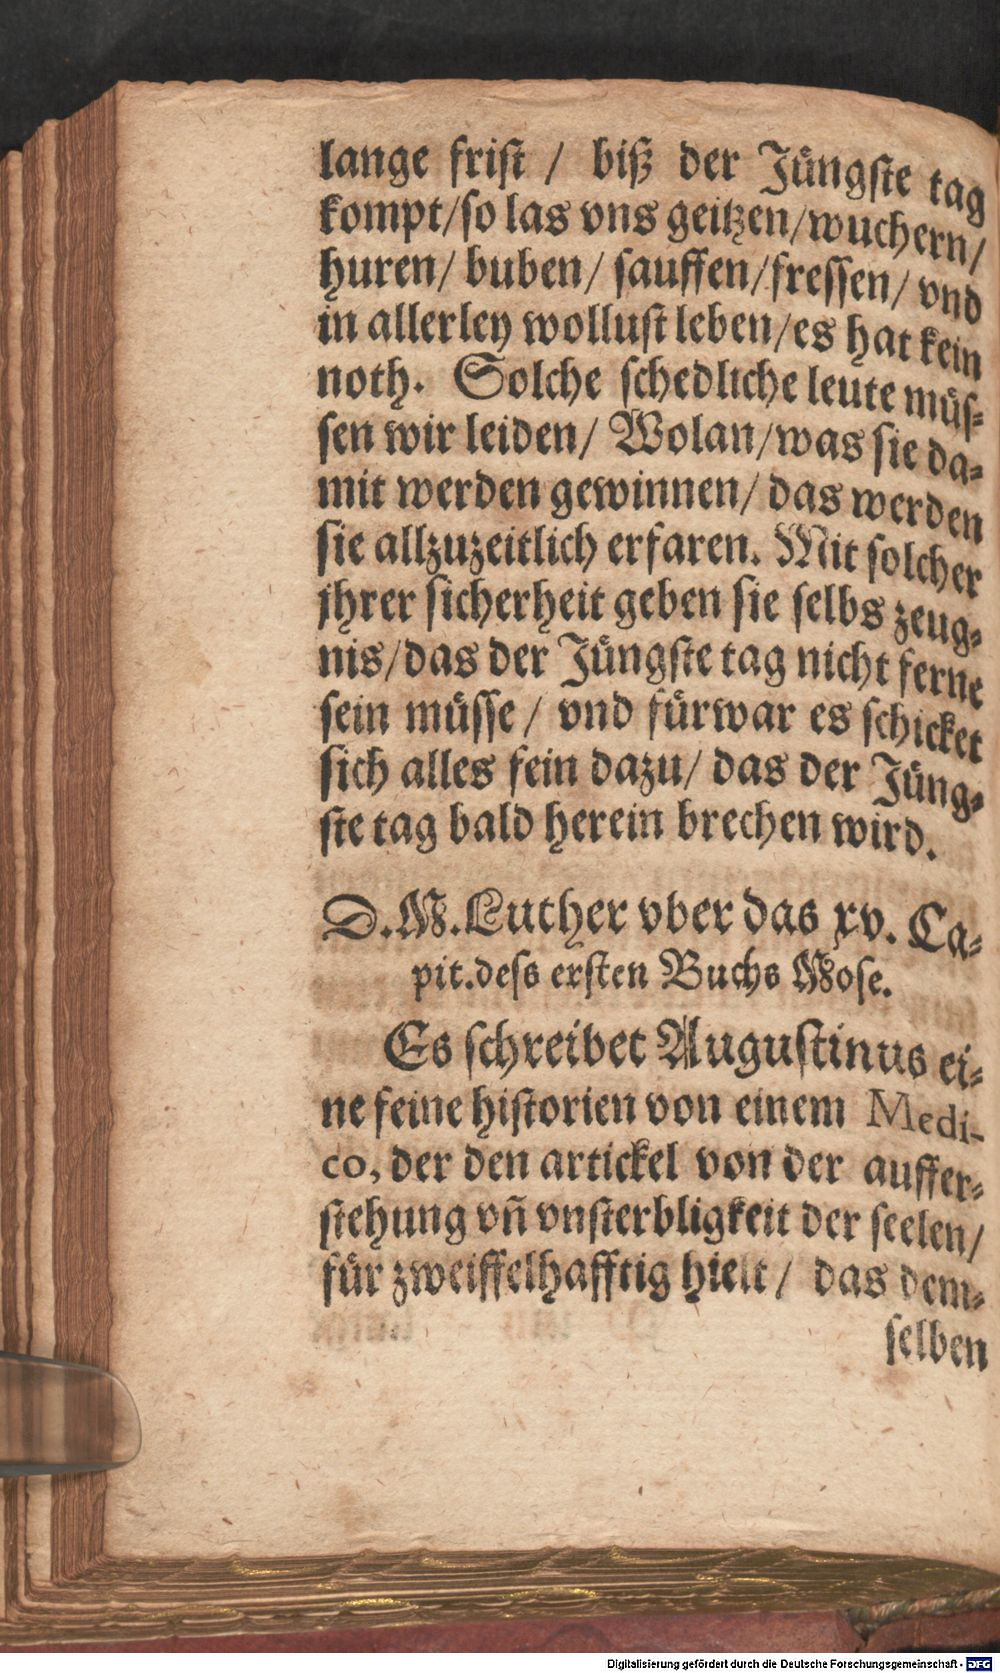 lange frist / biß der Jüngste tag
kompt/so las vns geitzen/wuchern/
huren/ buben/ sauffen/fressen/ vnd
in allerley wollust leben/es hat kein
noth. Solche schedliche leute müs⸗
sen wir leiden/ Wolan/was sie da⸗
mit werden gewinnen/ das werden
sie allzuzeitlich erfaren. Mit solcher
jhrer sicherheit geben sie selbs zeug⸗
nis/das der Jüngste tag nicht ferne
sein müsse / vnd fürwar es schicket
sich alles fein dazu/ das der Jüng⸗
ste tag bald herein brechen wird.
D.M.Luther vber das xv. Ca⸗
pit.dess ersten Buchs Mose.
Es schreibet Augustinus ei⸗
ne feine historien von einem Medi-
co, der den artickel von der auffer⸗
stehung vñ vnsterbligkeit der seelen/
für zweiffelhafftig hielt / das dem⸗
selben
Digitalisierung gefördert durch die Deutsche Forschungsgemeinschaft - DFG